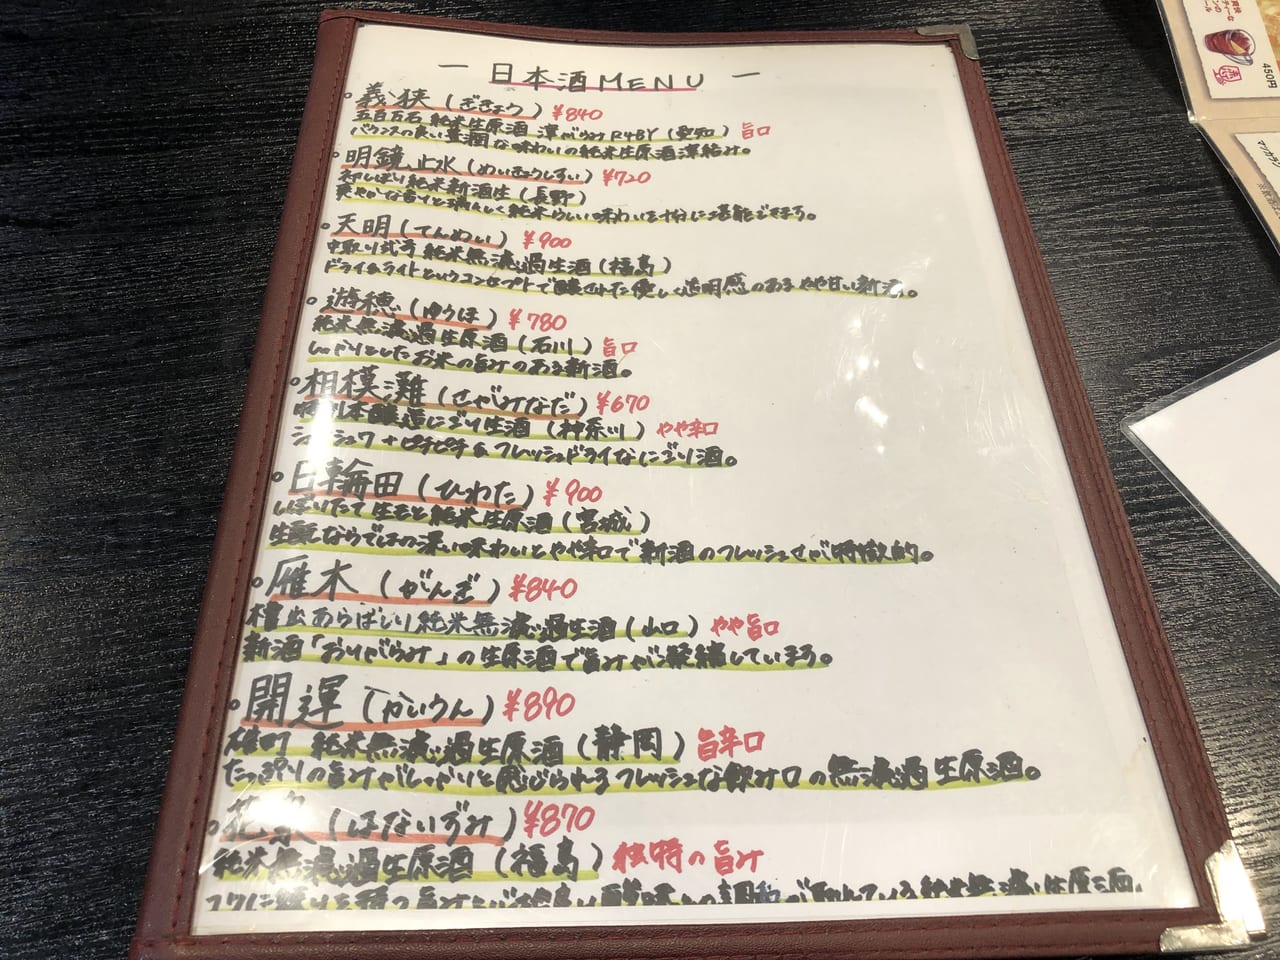 ー 日本酒MENU ー
。義侠(ぎきょう) ¥840
五百万石 純米生原酒 滓がらみ R4BY (愛知) 旨口
バランスの良い豊潤な味わいの純米生原酒滓絡み。
。明鏡止水(めいきょうしすい) ¥720
初しぼり純米新酒生(長野)
爽やかな香りと瑞々しく純米らしい味わいを十分に堪能できます。
。天明(てんめい) ¥900
中取り弐号 純米無濾過生酒(福島)
ドライ&ライトというコンセプトで醸された優しく透明感のあるやや甘い新酒。
。遊穂(ゆうほ) ¥780
純米無濾過生原酒(石川) 旨口
しっかりとしたお米の旨みのある新酒。
。相模灘(さがみなだ) ¥670
特別本醸造にごり生酒(神奈川) やや辛口
シュシュワ+ピチピチ&フレッシュドライなにごり酒。
。日輪田(ひわた) ¥900
しぼりたて生もと純米生原酒(宮城)
生酛ならではの深い味わいとやや辛口で新酒のフレッシュさが特徴的。
。雁木(がんぎ) ¥840
槽出あらばしり純米無濾過生原酒(山口) やや旨口
新酒「おりがらみ」の生原酒で旨みが凝縮しています。
。開運(かいうん) ¥890
雄町 純米無濾過生原酒(静岡) 旨辛口
たっぷりの旨みがしっかりと感じられるフレッシュな飲み口の無濾過生原酒。
。花泉(はないずみ) ¥870
純米無濾過生原酒(福島) 独特の旨み
450円